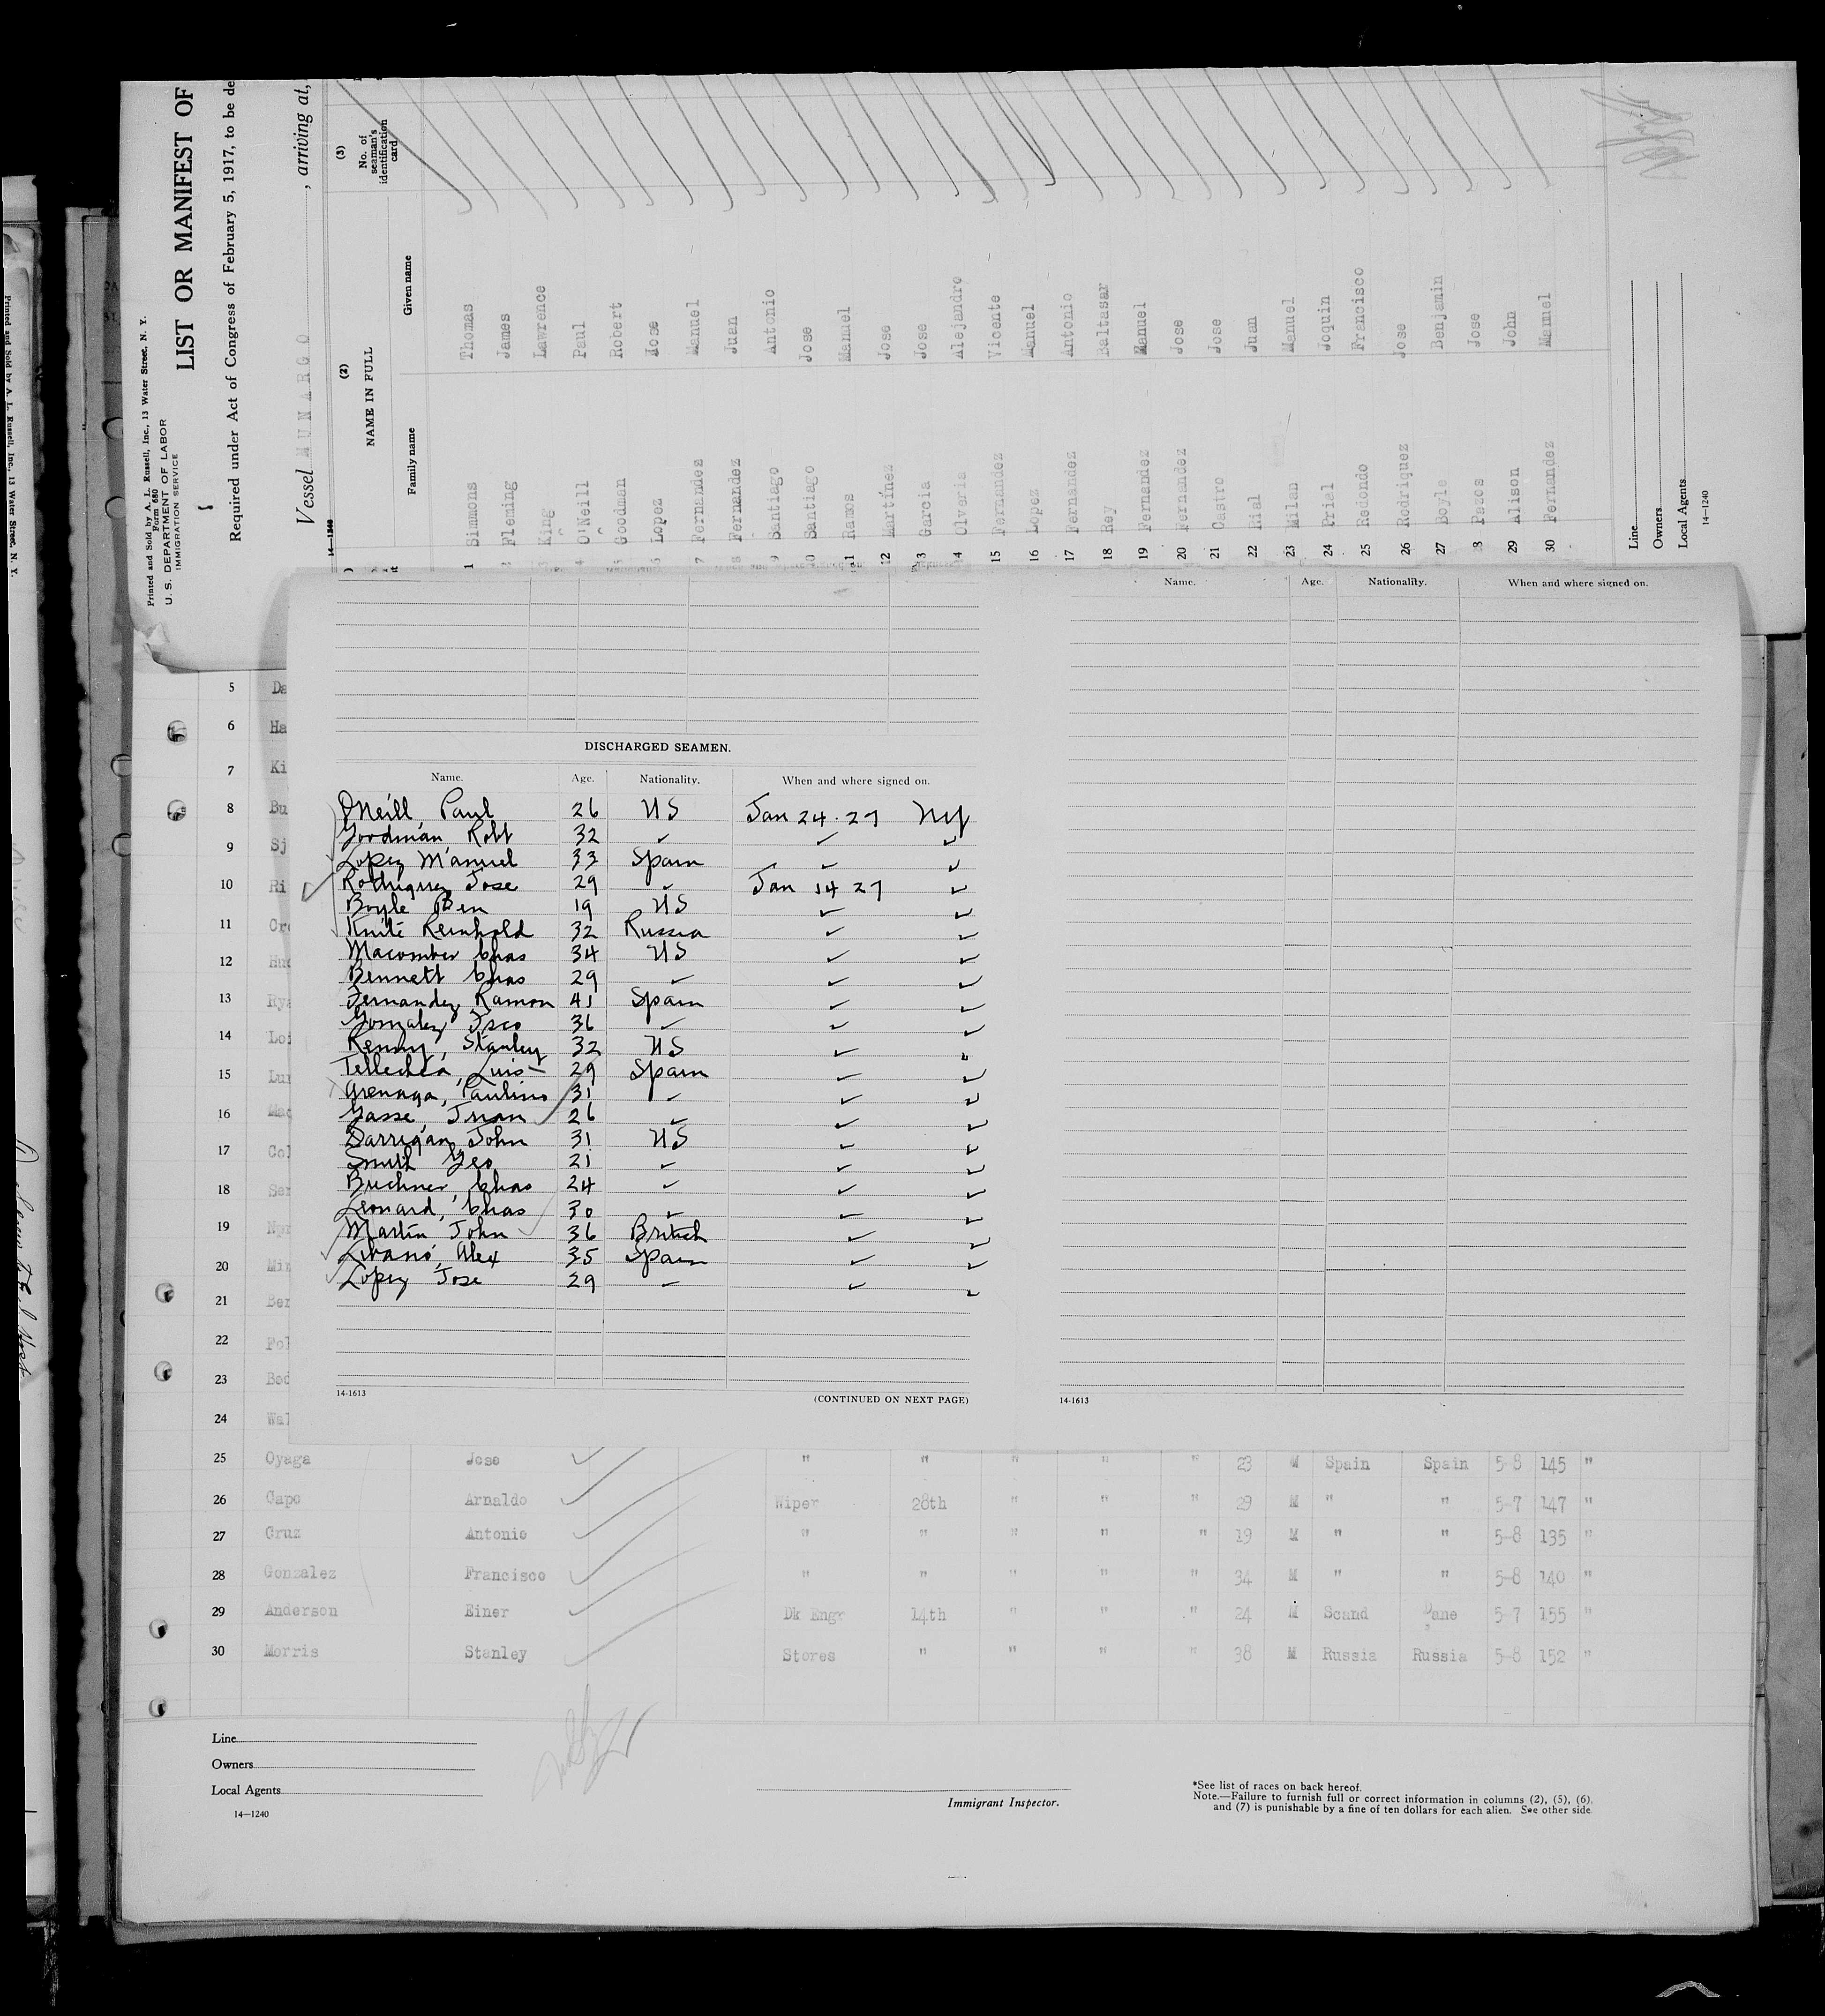 Printed and Sold by A. L. Russell, Inc., 13 Water Street, N. Y.
Form 680
U. S. DEPARTMENT OF LABOR
IMMIGRATION SERVICE
LIST OR MANIFEST OF
Required under Act of Congress of February 5, 1917, to be de
Vessel MUNARGO , arriving at,
14—1240
(2) (3)
NAME IN FULL No. of seaman's identification card
Family name Given name
1 Simmons Thomas
2 Fleming James
3 King Lawrence
4 O'Neill Paul
5 Goodman Robert
6 Lopez Jose
7 Fernandez Manuel
8 Fernandez Juan
9 Santiago Antonio
10 Santiago Jose
11 Ramos Manuel
12 Martinez Jose
13 Garcia Jose
14 Olveria Alejandro
15 Fernandez Vicente
16 Lopez Manuel
17 Fernandez Antonio
18 Rey Baltasar
19 Fernandez Manuel
20 Fernandez Jose
21 Castro Jose
22 Rial Juan
23 Milan Manuel
24 Prial Joquin
25 Redondo Francisco
26 Rodriquez Jose
27 Boyle Benjamin
28 Pazos Jose
29 Alison John
30 Fernandez Manuel
Line
Owners
Local Agents
14—1240
Printed and Sold by A. L. Russell, Inc., 13 Water Street, N. Y.
Name. Age. Nationality. When and where signed on.
DISCHARGED SEAMEN.
Name. Age. Nationality. When and where signed on.
O'Neill, Paul 26 US Jan 24·27 NY
Goodman, Robt 32 ✓ ✓ ✓
Lopez Manuel 33 Spain ✓ ✓
Rodriguez Jose 29 ✓ Jan 14 27 ✓
Boyle Ben 19 US ✓ ✓
Knite Reinhold 32 Russia ✓ ✓
Macomber Chas 34 US ✓ ✓
Bennett Chas 29 ✓ ✓ ✓
Fernandez, Ramon 41 Spain ✓ ✓
Gonzalez Fsco 36 ✓ ✓ ✓
Kenny, Stanley 32 US ✓ ✓
Tellechea, Luis 29 Spain ✓ ✓
Arenaga, Paulino 31 ✓ ✓ ✓
Gasse, Juan 26 ✓ ✓ ✓
Darrigan, John 31 US ✓ ✓
Smith Geo 21 ✓ ✓ ✓
Buchner, Chas 24 ✓ ✓ ✓
Leonard, Chas 30 ✓ ✓ ✓
Martin, John 36 British ✓ ✓
Livano, Alex 35 Spain ✓ ✓
Lopez Jose 29 ✓ ✓ ✓
14-1613 (CONTINUED ON NEXT PAGE)
14-1613
5 Da
6 Ha
7 Ki
8 Bu
9 Sj
10 Ri
11 Cro
12 Huc
13 Rya
14 Loi
15 Lun
16 Mac
17 Col
18 Ser
19 Nor
20 Min
21 Ber
22 Fol
23 Bod
24 Wal
25 Oyaga Jose " " " " " 23 M Spain Spain 5-8 145 "
26 Capo Arnaldo Wiper 28th " " " 29 M " " 5-7 147 "
27 Cruz Antonio " " " " " 19 M " " 5-8 135 "
28 Gonzalez Francisco " " " " " 34 M " " 5-8 140 "
29 Anderson Einer Dk Engr 14th " " " 24 M Scand Dane 5-7 155 "
30 Morris Stanley Stores " " " " 38 M Russia Russia 5-8 152 "
Line
Owners
Local Agents
14—1240
Immigrant Inspector.
*See list of races on back hereof.
Note.—Failure to furnish full or correct information in columns (2), (5), (6),
and (7) is punishable by a fine of ten dollars for each alien. See other side.